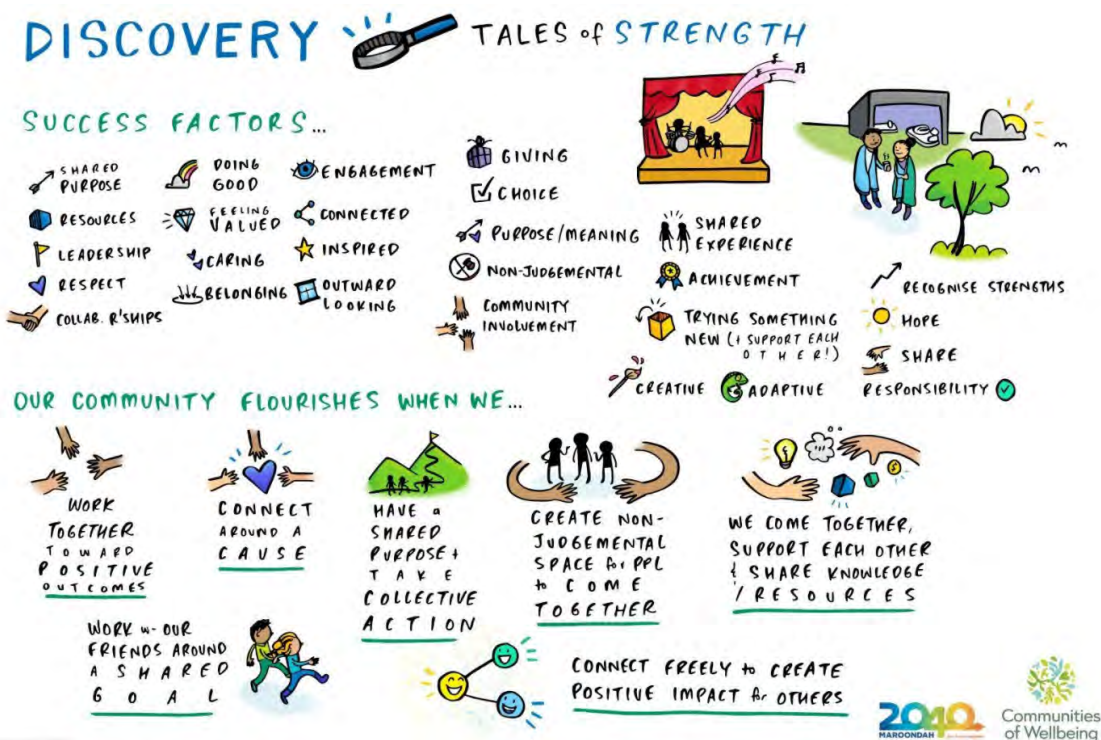 DISCOVERY
TALES of STRENGTH
SUCCESS FACTORS...
SHARED
PURPOSE
RESOURCES
LEADERSHIP
RESPECT
COLLAB. R'SHIPS
DOING
GOOD
FEELING
VALUED
CARING
BELONGING
ENGAGEMENT
CONNECTED
INSPIRED
OUTWARD
LOOKING
GIVING
CHOICE
PURPOSE/MEANING
NON-JUDGEMENTAL
COMMUNITY
INVOLVEMENT
SHARED
EXPERIENCE
ACHIEVEMENT
TRYING SOMETHING
NEW (+ SUPPORT EACH
OTHER!)
CREATIVE
ADAPTIVE
RECOGNISE STRENGTHS
HOPE
SHARE
RESPONSIBILITY
OUR COMMUNITY FLOURISHES WHEN WE...
WORK
TOGETHER
TOWARD
POSITIVE
OUTCOMES
CONNECT
AROUND A
CAUSE
HAVE a
SHARED
PURPOSE +
TAKE
COLLECTIVE
ACTION
CREATE NON-
JUDGEMENTAL
SPACE for PPL
to COME
TOGETHER
WE COME TOGETHER,
SUPPORT EACH OTHER
& SHARE KNOWLEDGE
/RESOURCES
WORK w- OUR
FRIENDS AROUND
A SHARED
GOAL
CONNECT FREELY to CREATE
POSITIVE IMPACT for OTHERS
2040
MAROONDAH
Communities
of Wellbeing